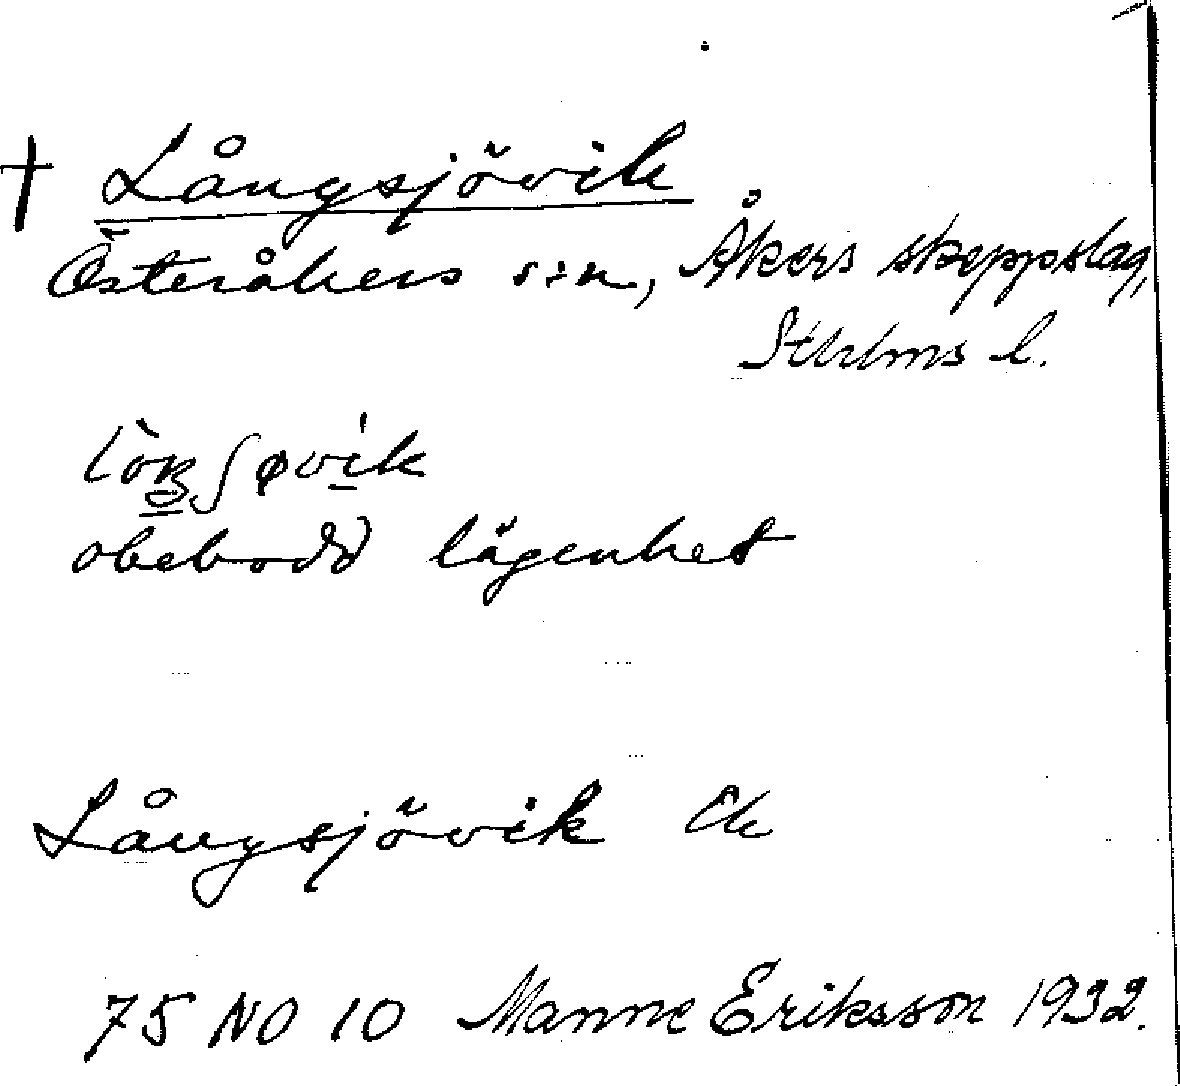 † Långsjövik
Österåkers s:n, Åkers skeppslag,
Sthlms l.
obebodd lägenhet
Långsjövik Ek
75 NO 10 Manne Eriksson 1932.